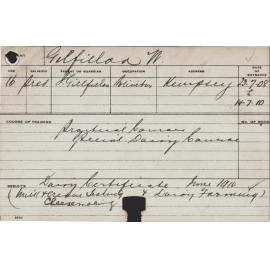 Gilfillan W.
AGE RELIGION PARENT OR GUARDIAN OCCUPATION ADDRESS DATE OF ENTRANCE
16 Pres Gilfillan Kempsey 23/7/08
14.7.10
COURSE OF TRAINING
Practical
Special Dairy Course
RESULTS Dairy Certificate June 1910
(Milk & Cream Testing & Dairy Farming)
Cheesemaking